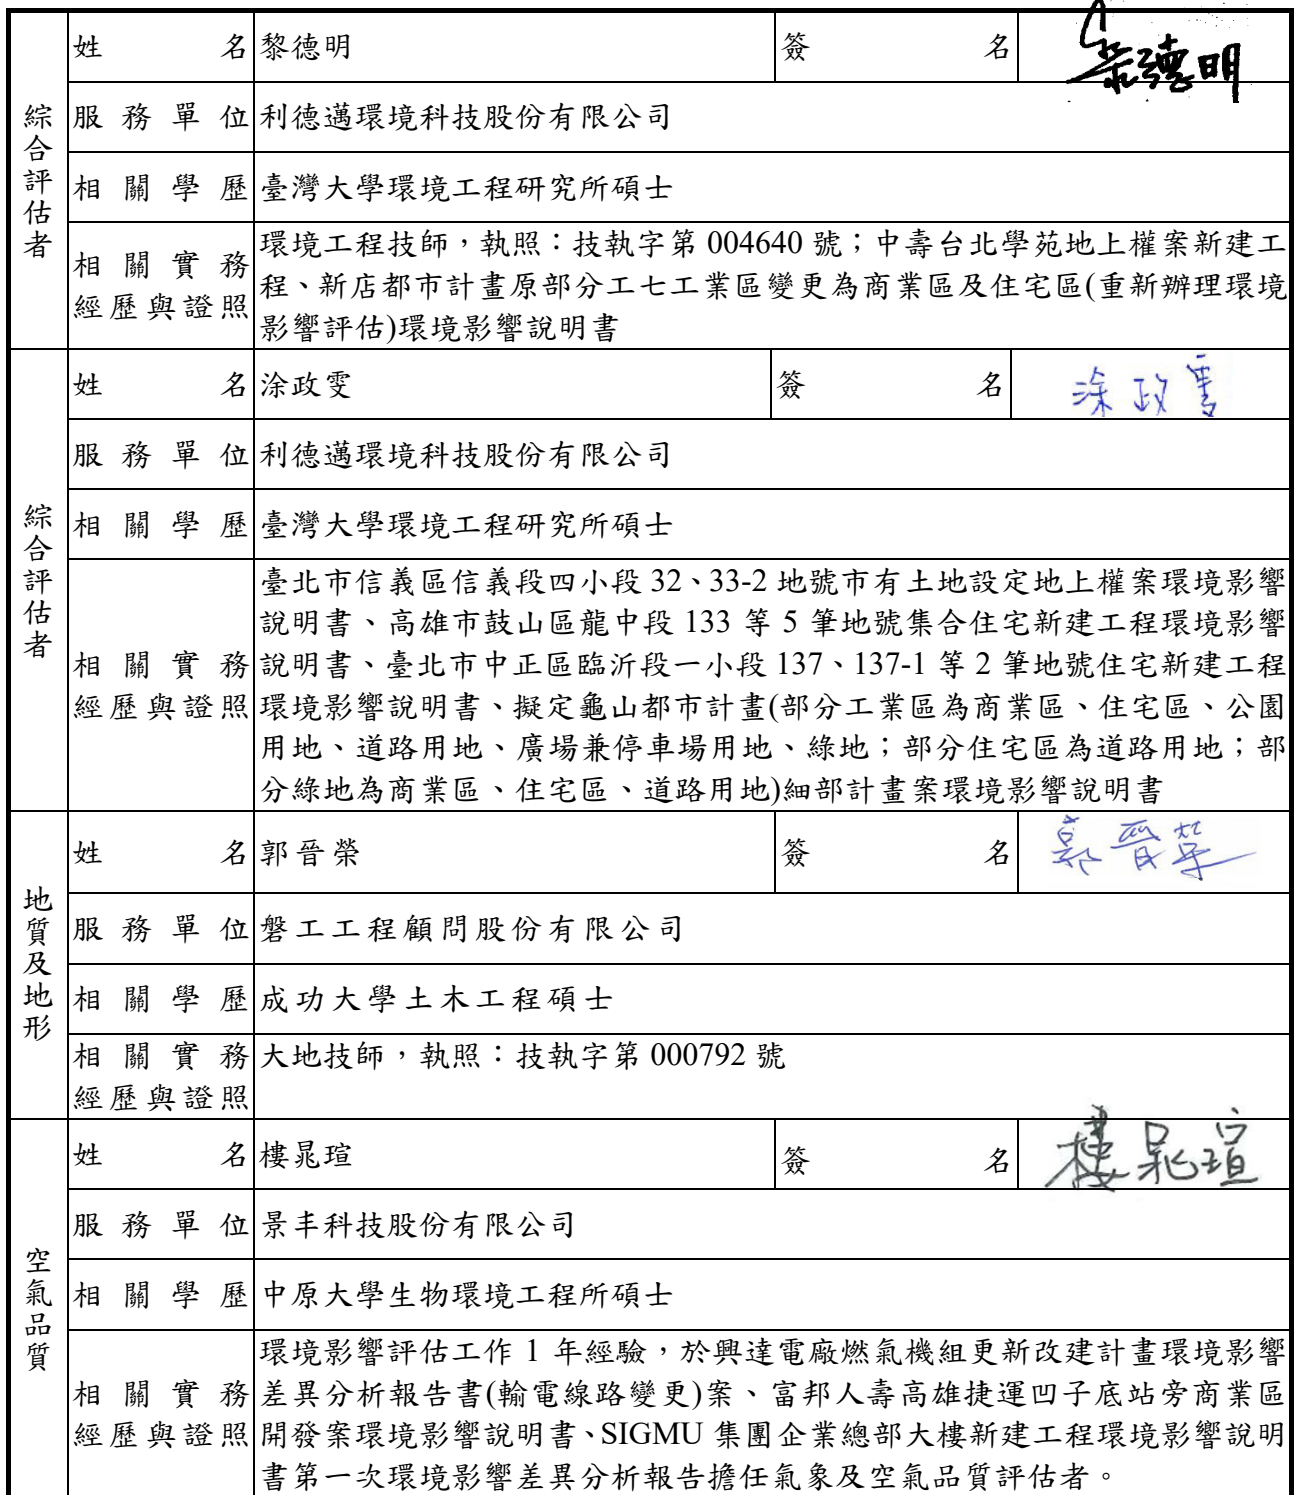 綜合評估者
姓名 黎德明 簽名 黎德明
服務單位 利德邁環境科技股份有限公司
相關學歷 臺灣大學環境工程研究所碩士
相關實務經歷與證照
環境工程技師，執照：技執字第 004640 號；中壽台北學苑地上權案新建工
程、新店都市計畫原部分工七工業區變更為商業區及住宅區(重新辦理環境
影響評估)環境影響說明書
綜合評估者
姓名 涂政雯 簽名 涂政雯
服務單位 利德邁環境科技股份有限公司
相關學歷 臺灣大學環境工程研究所碩士
相關實務經歷與證照
臺北市信義區信義段四小段 32、33-2 地號市有土地設定地上權案環境影響
說明書、高雄市鼓山區龍中段 133 等 5 筆地號集合住宅新建工程環境影響
說明書、臺北市中正區臨沂段一小段 137、137-1 等 2 筆地號住宅新建工程
環境影響說明書、擬定龜山都市計畫(部分工業區為商業區、住宅區、公園
用地、道路用地、廣場兼停車場用地、綠地；部分住宅區為道路用地；部
分綠地為商業區、住宅區、道路用地)細部計畫案環境影響說明書
地質及地形
姓名 郭晉榮 簽名 郭晉榮
服務單位 磐工工程顧問股份有限公司
相關學歷 成功大學土木工程碩士
相關實務經歷與證照
大地技師，執照：技執字第 000792 號
空氣品質
姓名 樓晁瑄 簽名 樓晁瑄
服務單位 景丰科技股份有限公司
相關學歷 中原大學生物環境工程所碩士
相關實務經歷與證照
環境影響評估工作 1 年經驗，於興達電廠燃氣機組更新改建計畫環境影響
差異分析報告書(輸電線路變更)案、富邦人壽高雄捷運凹子底站旁商業區
開發案環境影響說明書、SIGMU 集團企業總部大樓新建工程環境影響說明
書第一次環境影響差異分析報告擔任氣象及空氣品質評估者。